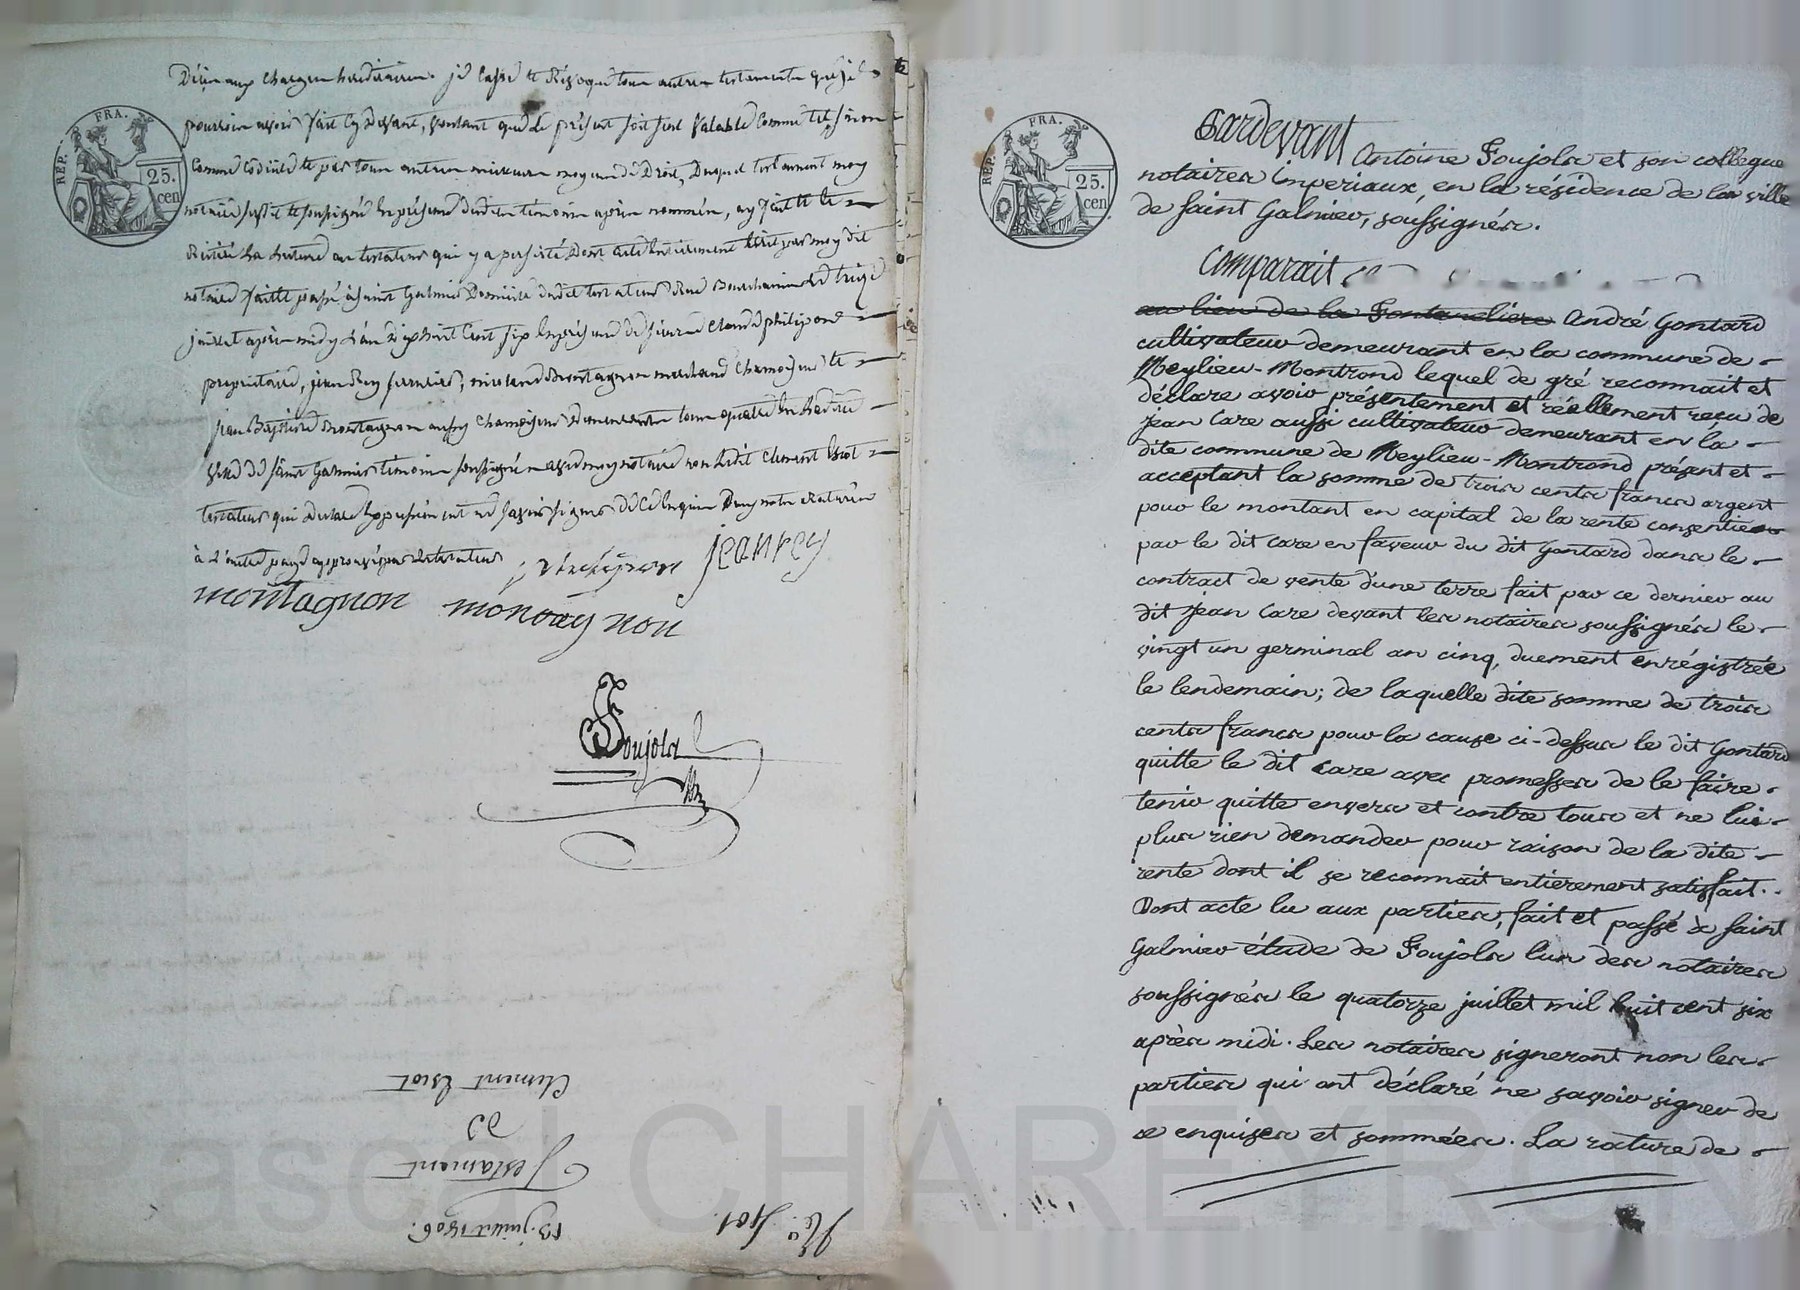 Désir aux charges héréditaires. je Casse et Révoque tous autres testaments que je
pourrois avoir fait Cy devant, voulant que Le présent soit seul Valable Comme tel, sinon
Comme Codicile et par tous autres meilleurs moyens de Droit, Duquel testament moy
notaire susdit et soussigné En présence desdits temoins après nommés, ay fait et
Réitéré La Lecture au testateur qui y a persisté Dont acte Entièrement Ecrit par moy dit
notaire fait et passé à saint Galmier Domicile dudit testateur Rue Le treize
juillet après midy L'an dix huit Cent six En présence de sieurs Claude philipone
propriétaire, jean Rey , montagnon marchand Chamoiseur et
jean Baptiste montagnon aussy Chamoiseur Demeurants tous quatre En Ladite
ville de saint Galmier temoins soussignés avec moy notaire non Ledit Clement Escot
testateur qui a declaré ne savoir signer de Ce Enquis Deux mots raturés
à L'autre page approuvé par Le testateur
jean rey
montagnon montagnon
Foujols
Nre
Clement Escot
De
Testament
13. juillet 1806.
N.° 401.
REP. FRA.
25. cen
REP. FRA.
25. cen
Pardevant Antoine Foujols et son collegue
notaires imperiaux, en la résidence de la ville
de saint Galmier, soussignés.
Comparait
au lieu de la Fontaneliere André Gontard
cultivateur demeurant en la commune de
Meylieu-Montrond lequel de gré reconnait et
déclare avoir présentement et réellement reçu de
jean Care aussi cultivateur demeurant en la
dite commune de Meylieu-Montrond présent et
acceptant la somme de trois cents francs argent
pour le montant en capital de la rente consentie
par le dit Care en faveur du dit Gontard dans le
contract de vente d'une terre fait par ce dernier au
dit jean Care devant les notaires soussignés le
vingt un germinal an cinq, duement enrégistrée
le lendemain; de laquelle dite somme de trois
cents francs pour la cause ci-dessus le dit Gontard
quitte le dit Care avec promesses de le faire
tenir quitte envers et contre tous et ne lui
plus rien demander pour raison de la dite
rente dont il se reconnait entierement satisfait.
Dont acte lu aux parties, fait et passé à saint
Galmier étude de Foujols l'un des notaires
soussignés le quatorze juillet mil huit cent six
après midi. Les notaires signeront non les
parties qui ont déclaré ne savoir signer de
ce enquises et sommées. La rature de
Pascal CHAREYRON